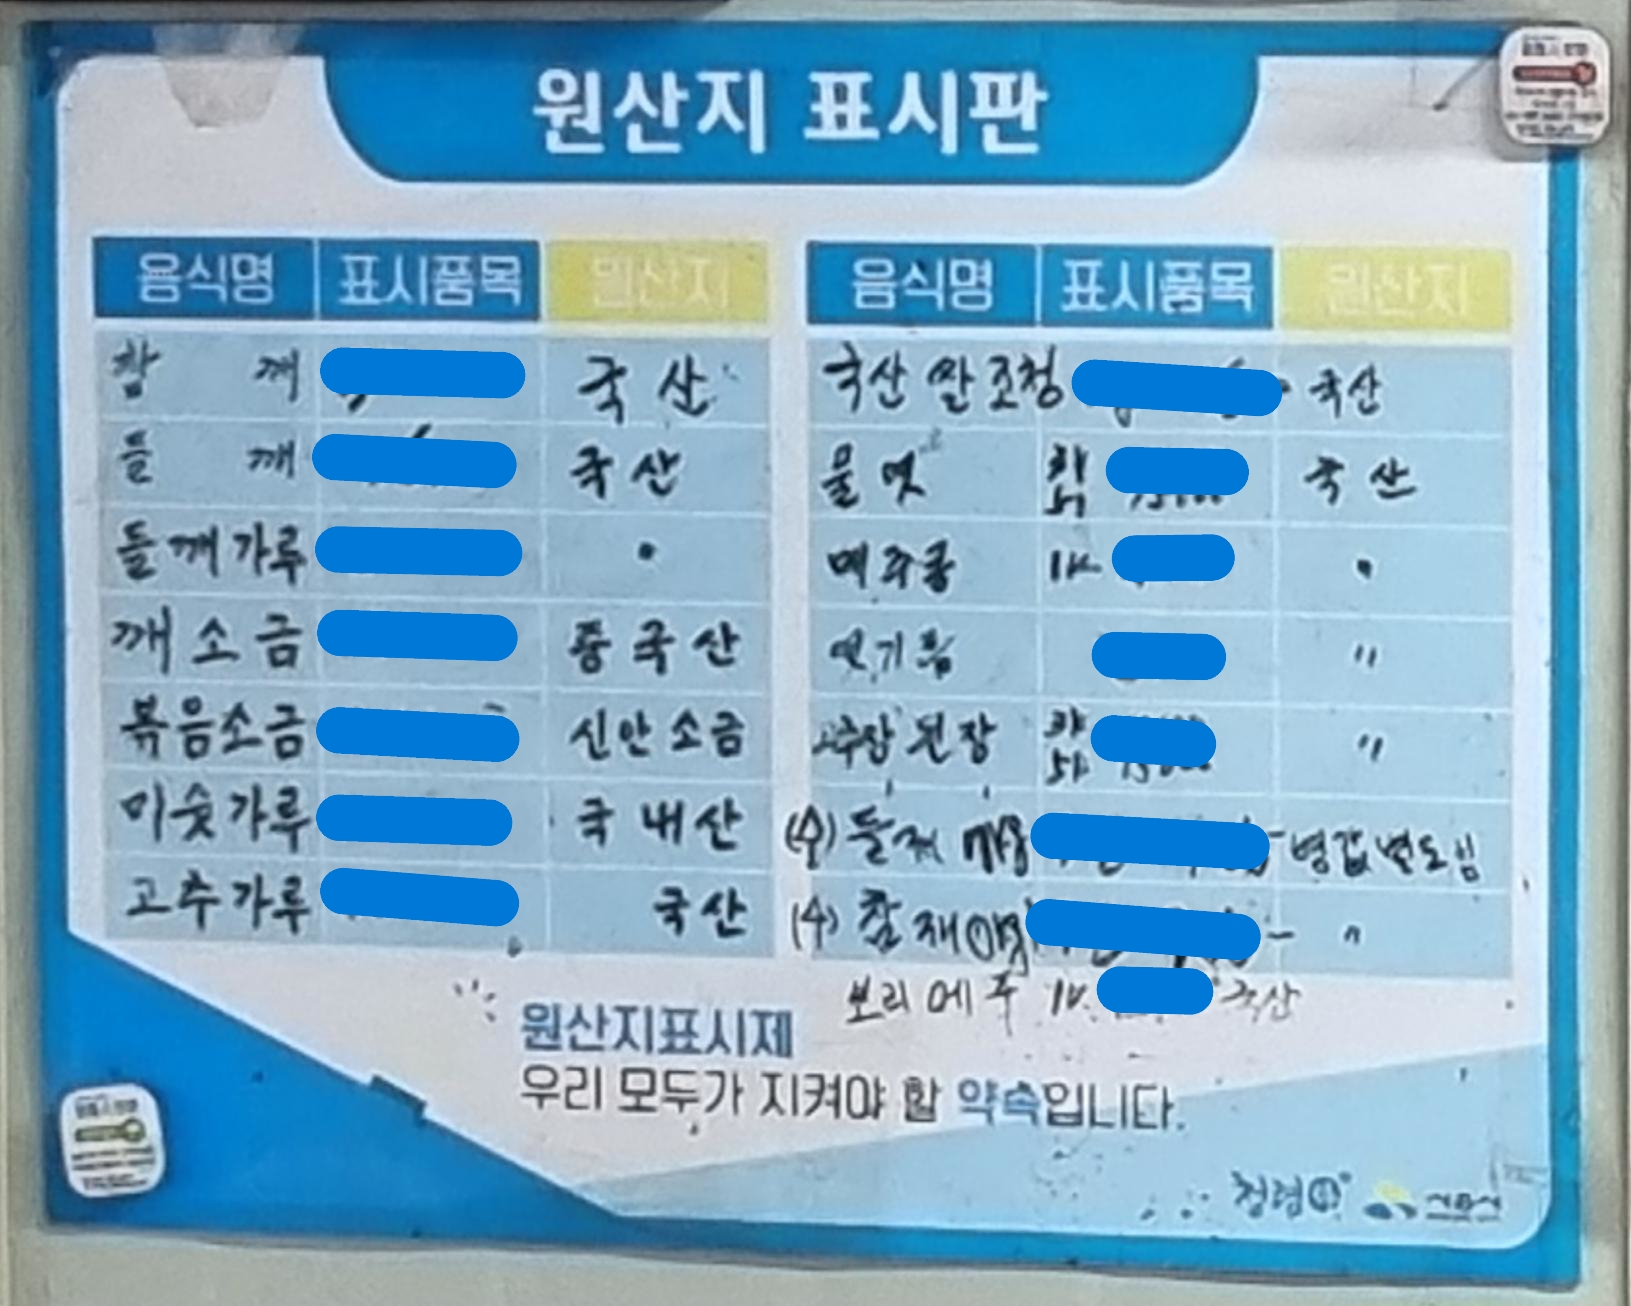 원산지 표시판
음식명 표시품목 원산지
참 깨 국산
들 깨 국산
들깨가루 "
깨소금 중국산
볶음소금 신안소금
미숫가루 국내산
고추가루 국산
음식명 표시품목 원산지
국산 쌀 조청 국산
물엿 국산
메주콩 1k "
엿기름 "
고추장 된장 "
(수) 들깨 병값 별도임
(수) 참깨 "
보리메주 1k 국산
원산지표시제
우리 모두가 지켜야 할 약속입니다.